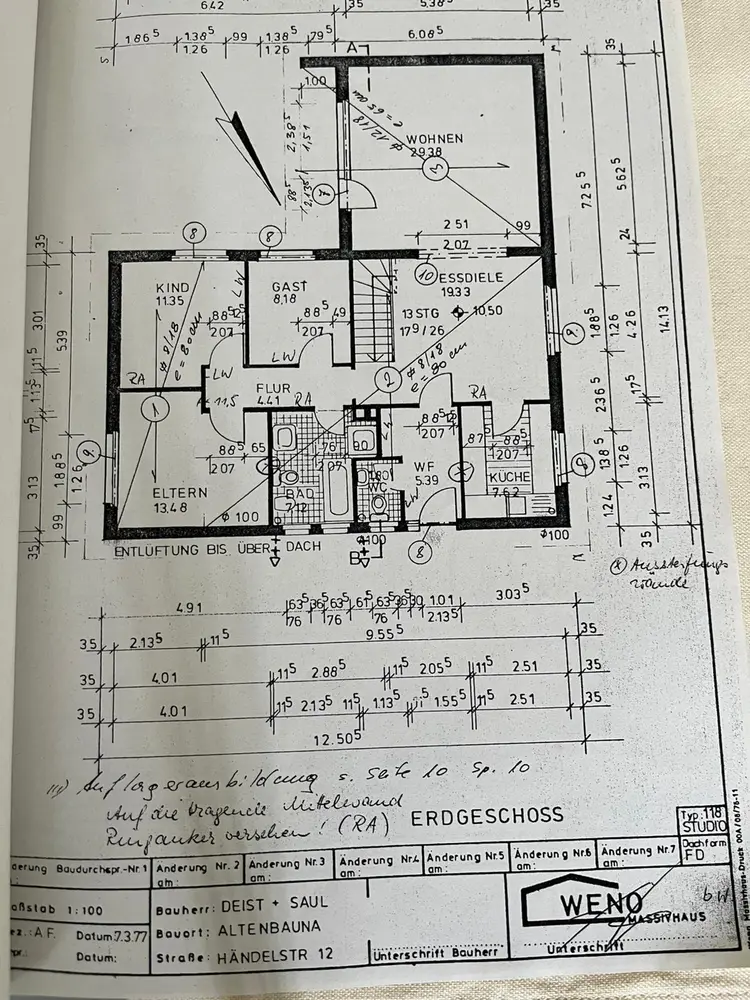 6.42
35
5.38⁵
35
1.86⁵
1.38⁵
1.26
99
1.38⁵
1.26
79⁵
6.08⁵
A
35
1.00
2,38⁵
1,51
88⁵
2,13⁵
φ 12/18
e = 65 cm
WOHNEN
29.38
3
7
7.25⁵
5.62⁵
24
2.51
99
2.07
10
8
8
35
KIND
11.35
GAST
8,18
LW
ESSDIELE
19.33
13 STG
17⁹/26
10,50
88⁵
207
88⁵
49
207
φ 8/18
e = 80 cm
RA
LW
LW
FLUR
4.41
RA
2
φ 8/18
e = 90 cm
RA
1
11,5
301
5.39
11⁵
1.13⁵
17⁵
3.13
1.88⁵
1.26
99
35
1.88⁵
1.26
4.26
14.13
2.36⁵
17⁵
1.38⁵
1.26
3.13
1.24
35
88⁵
65
207
76
2.07
90
88⁵
207
87⁵
88⁵
207
ELTERN
13.48
BAD
7.12
WC
1.80
WF
5.39
LW
KÜCHE
7.62
φ 100
φ100
φ100
8
ENTLÜFTUNG BIS ÜBER DACH
B
(x) Aussteifungs
wände
4.91
63⁵
76
36⁵
63⁵
76
61⁵
63⁵
76
36⁵
90
1.01
2.13⁵
3.03⁵
35
2.13⁵
11⁵
9.55⁵
35
35
4.01
11⁵
2.88⁵
11⁵
2.05⁵
11⁵
2.51
35
35
4.01
11⁵
2.13⁵
11⁵
1.13⁵
11⁵
1.55⁵
11⁵
2.51
35
12.50⁵
Auflagerausbildung s. Seite 10 Sp. 10
Auf die tragende Mittelwand
Ringanker versehen! (RA)
ERDGESCHOSS
Typ: 118
STUDIO
Dachform
FD
Baudurchspr.-Nr.1
Änderung Nr. 2
am:
Änderung Nr.3
am:
Änderung Nr.4
am:
Änderung Nr.5
am:
Änderung Nr.6
am:
Änderung Nr.7
am:
1:100
Bauherr: DEIST + SAUL
A.F. Datum:7.3.77
Bauort: ALTENBAUNA
Datum:
Straße: HÄNDELSTR 12
Unterschrift Bauherr
WENO
MASSIVHAUS
Unterschrift
Massivhaus-Druck 00A/08/76-11